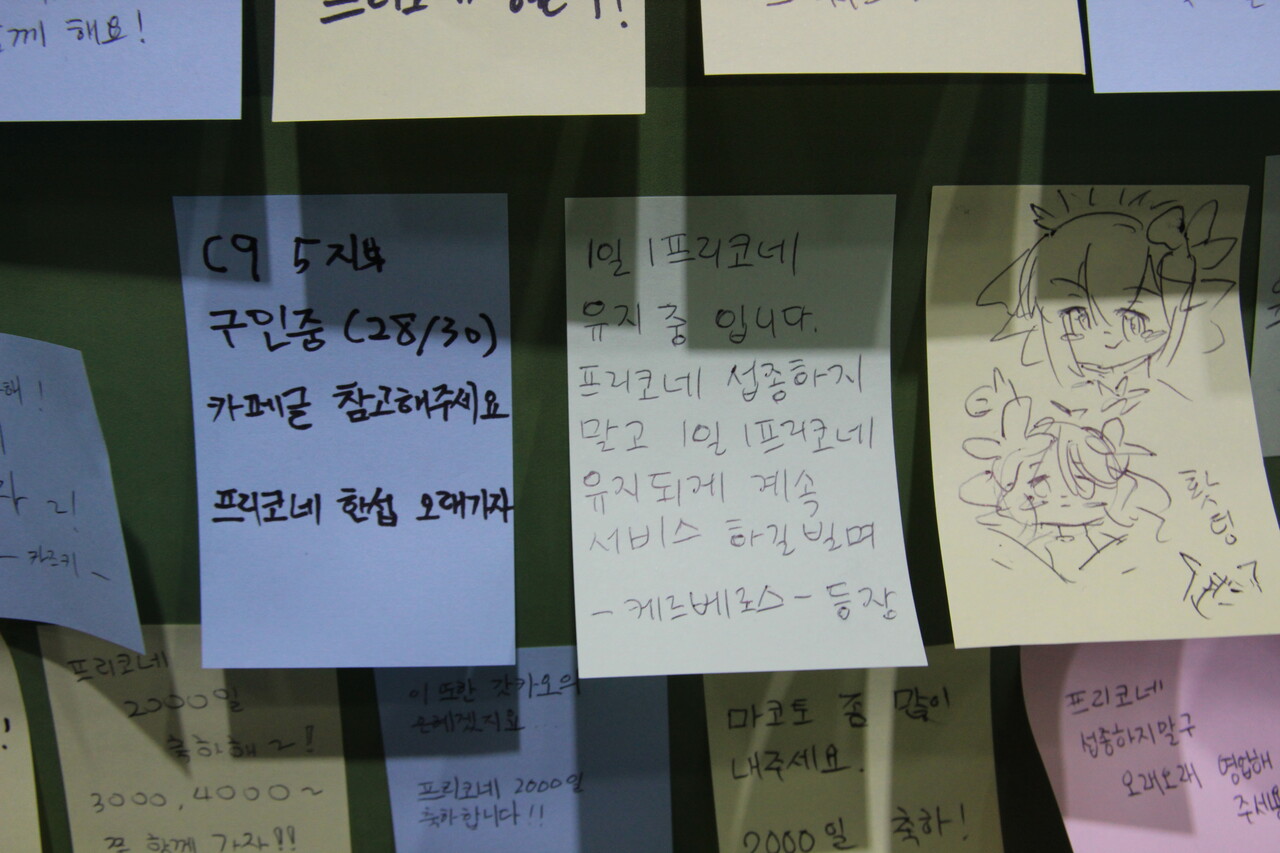 께 해요!
C9 5지부
구인중 (28/30)
카페글 참고해주세요
프리코네 한섭 오래가자
1일 1프리코네
유지 중 입니다.
프리코네 섭종하지
말고 1일 1프리코네
유지되게 계속
서비스 하길 빌며
- 케르베로스 - 등장
홧
팅
프리코네
2000일
축하해~!
3000, 4000~
쭉 함께 가자!!
이 또한 갓카오의
은혜겠지요...
프리코네 2000일
축하합니다!!
마코토 좀 많이
내주세요.
2000일 축하!
프리코네
섭종하지말구
오래오래 영업해